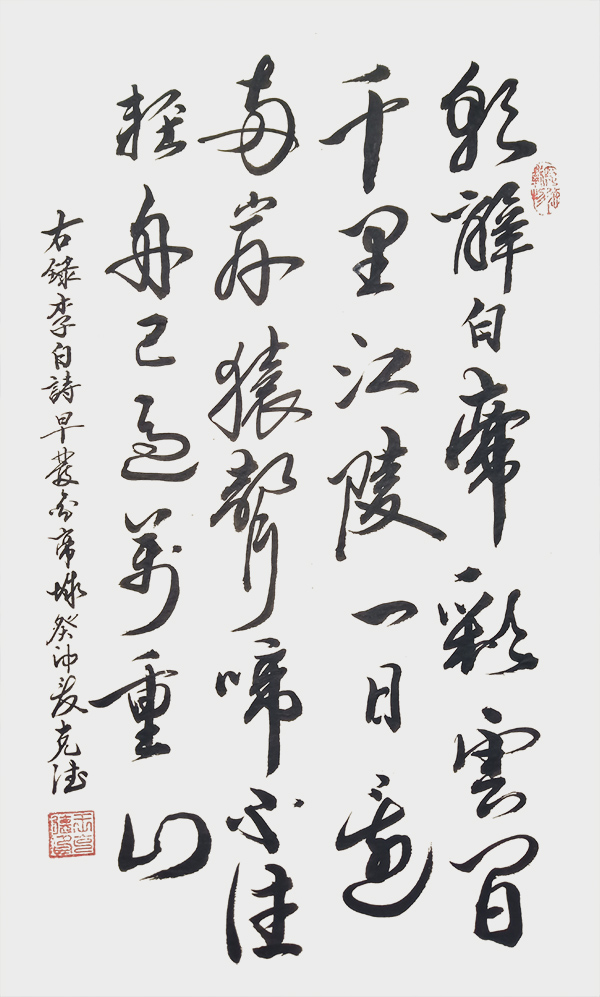 朝辭白帝彩雲間
千里江陵一日還
兩岸猿聲啼不住
輕舟已過萬重山
右錄李白詩早發白帝城癸卯夏克德